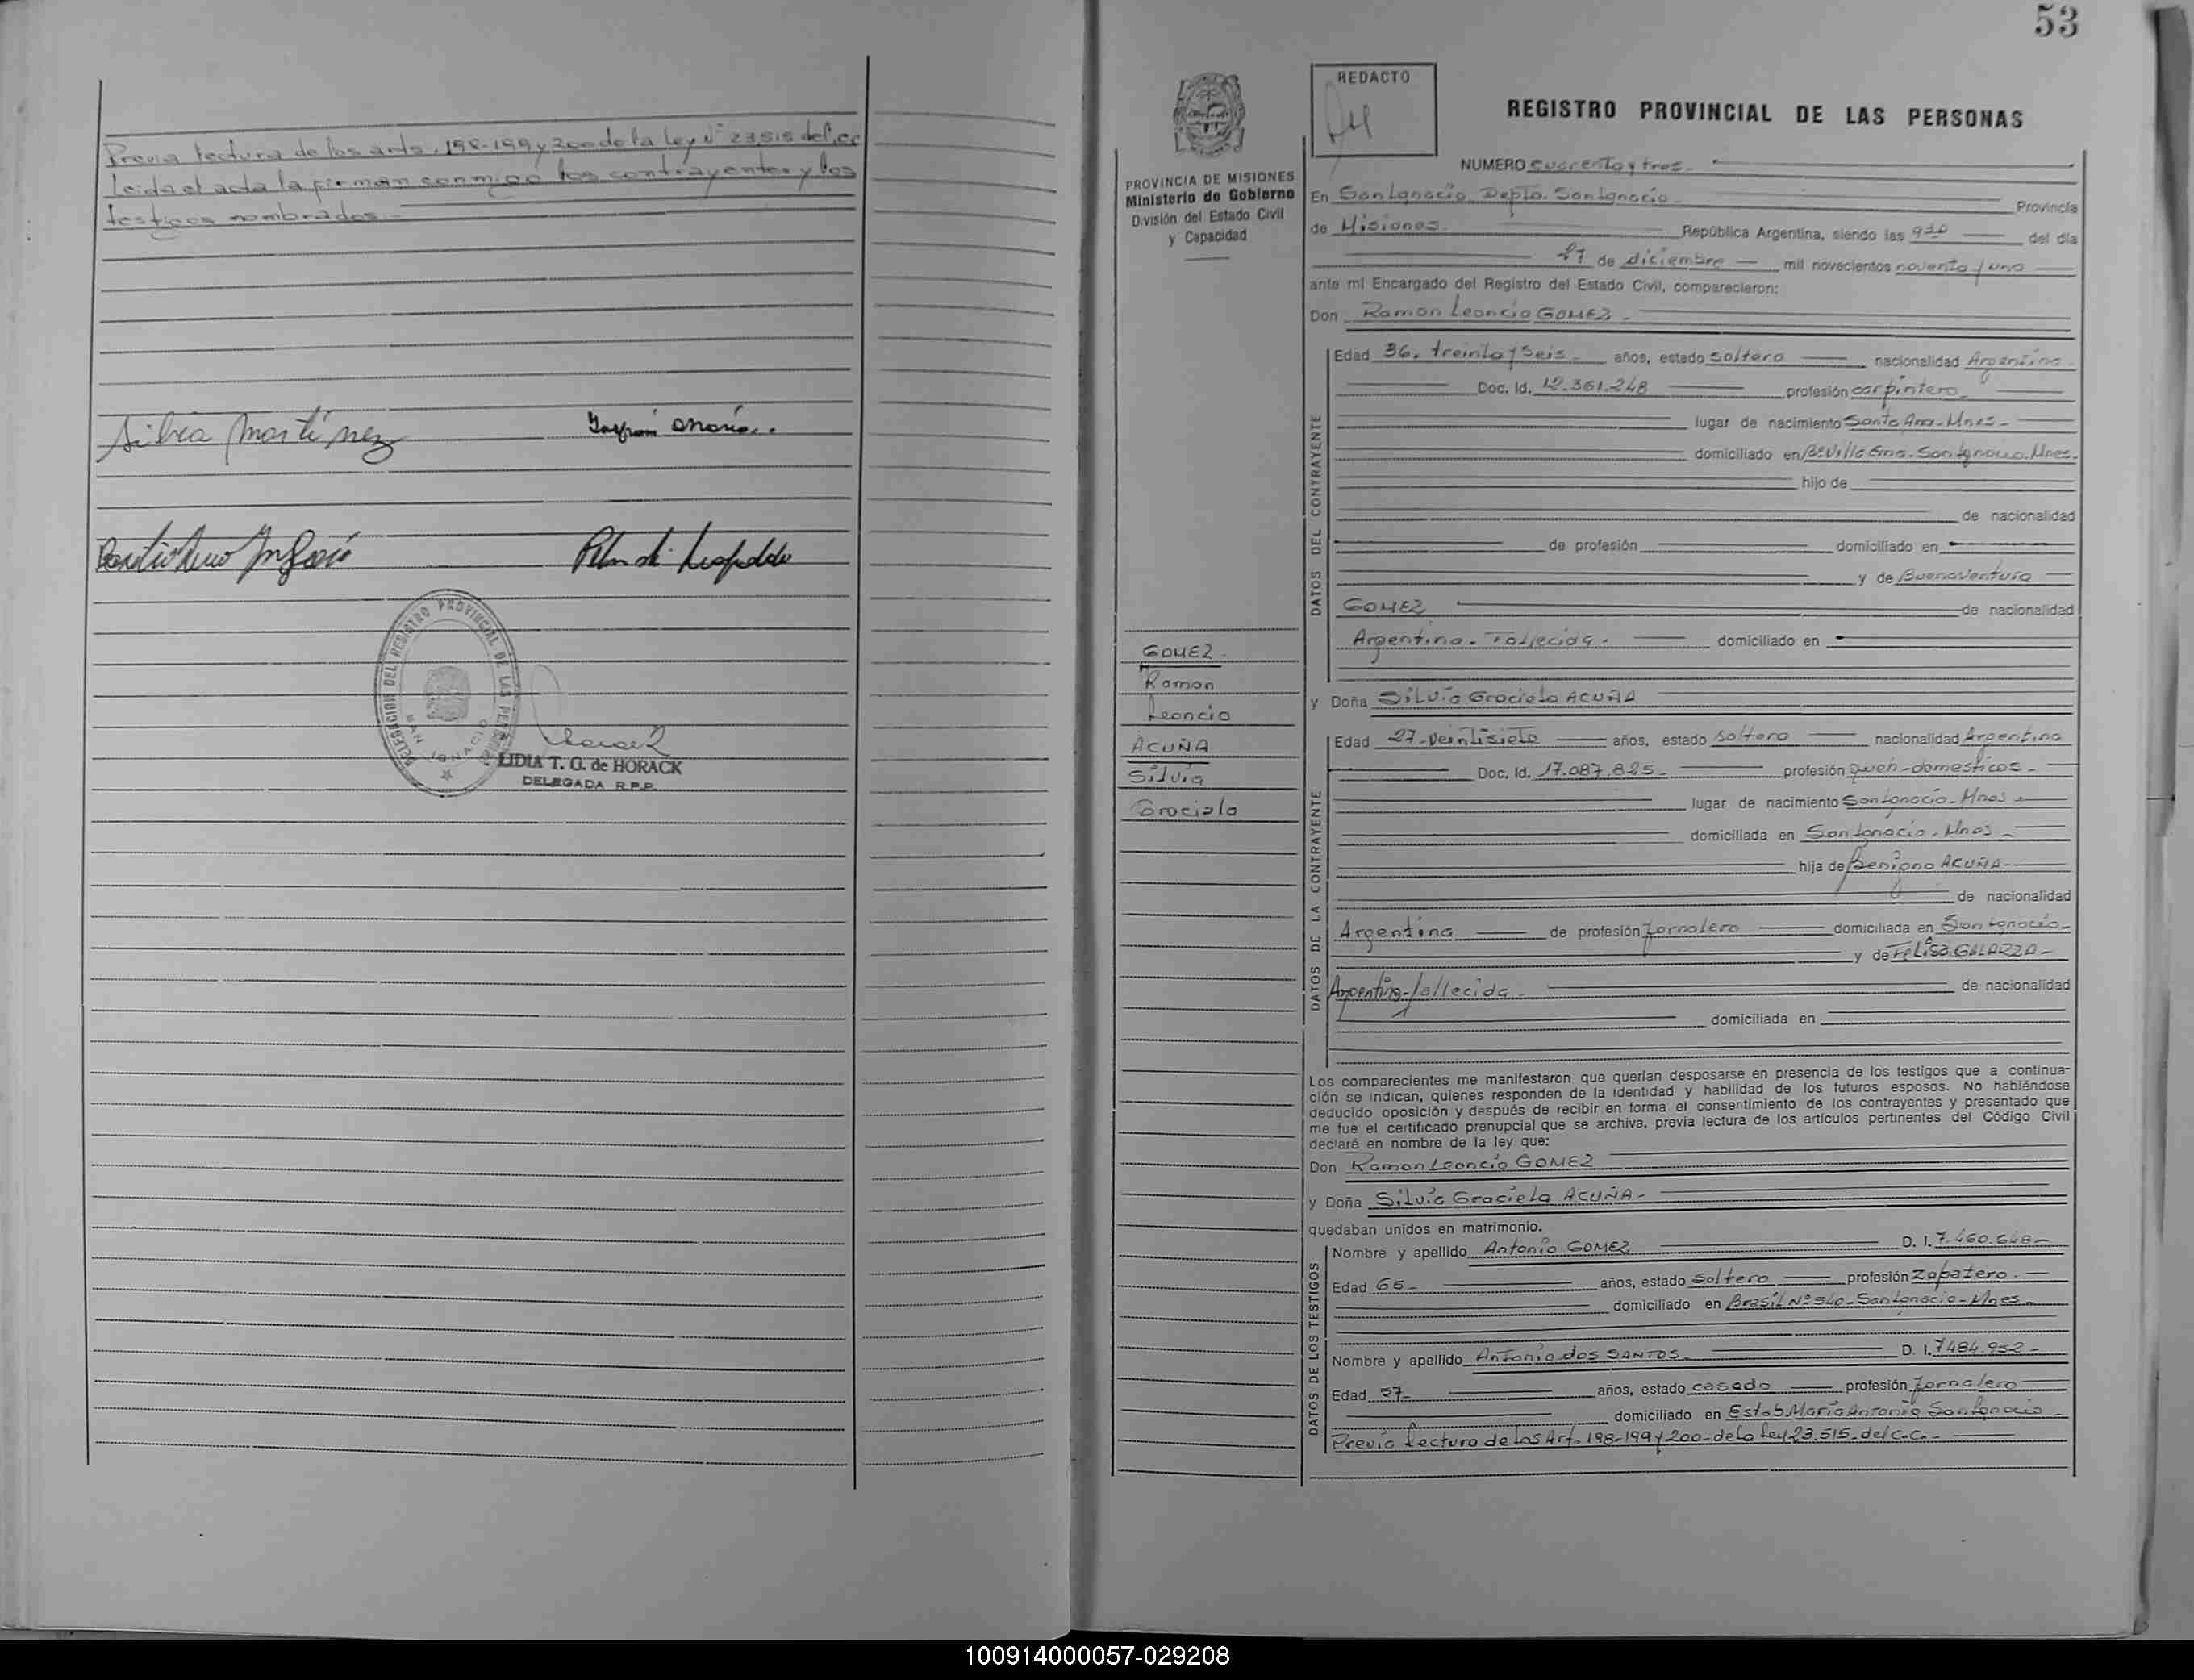 Previa lectura de los arts. 198-199 y 200 de la Ley Nº 23.515 del c.c
Leida el acta la firman conmigo los contrayentes y los
testigos nombrados.-
Silvia Martínez
DELEGACION DEL REGISTRO PROVINCIAL DE LAS PERSONAS
SAN IGNACIO
LIDIA T. G. de HORACK
DELEGADA R.P.P.
53
REDACTO
PROVINCIA DE MISIONES
Ministerio de Gobierno
División del Estado Civil
y Capacidad
GOMEZ
Ramon
Leoncio
ACUÑA
Silvia
Graciela
REGISTRO PROVINCIAL DE LAS PERSONAS
NUMERO cuarenta y tres.-
En San Ignacio Depto. San Ignacio Provincia
de Misiones. República Argentina, siendo las 9:30 del día
27 de diciembre mil novecientos noventa y uno
ante mi Encargado del Registro del Estado Civil, comparecieron:
Don Ramon Leoncio GOMEZ -
DATOS DEL CONTRAYENTE
Edad 36. treinta y seis años, estado soltero nacionalidad Argentina
Doc. Id. 12.361.248 profesión carpintero
lugar de nacimiento Santa Ana - Mnes -
domiciliado en Bº Villa Emo. San Ignacio. Mnes.
hijo de
de nacionalidad
de profesión domiciliado en
y de Buenaventura
GOMEZ de nacionalidad
Argentina. Fallecida. domiciliado en
y Doña Silvia Graciela ACUÑA
DATOS DE LA CONTRAYENTE
Edad 27-veintisiete años, estado soltera nacionalidad Argentina
Doc. Id. 17.087.825- profesión queh-domesticos-
lugar de nacimiento San Ignacio - Mnes -
domiciliada en San Ignacio. Mnes -
hija de Benigno ACUÑA-
de nacionalidad
Argentina de profesión jornalero domiciliada en San Ignacio-
y de Felisa GALARZA-
Argentina-fallecida- de nacionalidad
domiciliada en
Los comparecientes me manifestaron que querían desposarse en presencia de los testigos que a continua-
ción se indican, quienes responden de la identidad y habilidad de los futuros esposos. No habiéndose
deducido oposición y después de recibir en forma el consentimiento de los contrayentes y presentado que
me fue el certificado prenupcial que se archiva, previa lectura de los artículos pertinentes del Código Civil
declaré en nombre de la ley que:
Don Ramon Leoncio GOMEZ
y Doña Silvia Graciela ACUÑA-
quedaban unidos en matrimonio.
DATOS DE LOS TESTIGOS
Nombre y apellido Antonio GOMEZ D. I. 7.460.648-
Edad 65- años, estado soltero profesión zapatero.
domiciliado en Brasil Nº 540-San Ignacio-Mnes-
Nombre y apellido Antonio dos SANTOS D. I. 7484.952-
Edad 57- años, estado casado profesión jornalero
domiciliado en Estab. María Antonia San Ignacio-
Previa lectura de los Art. 198-199 y 200-de la Ley 23.515-del c.c.-
100914000057-029208